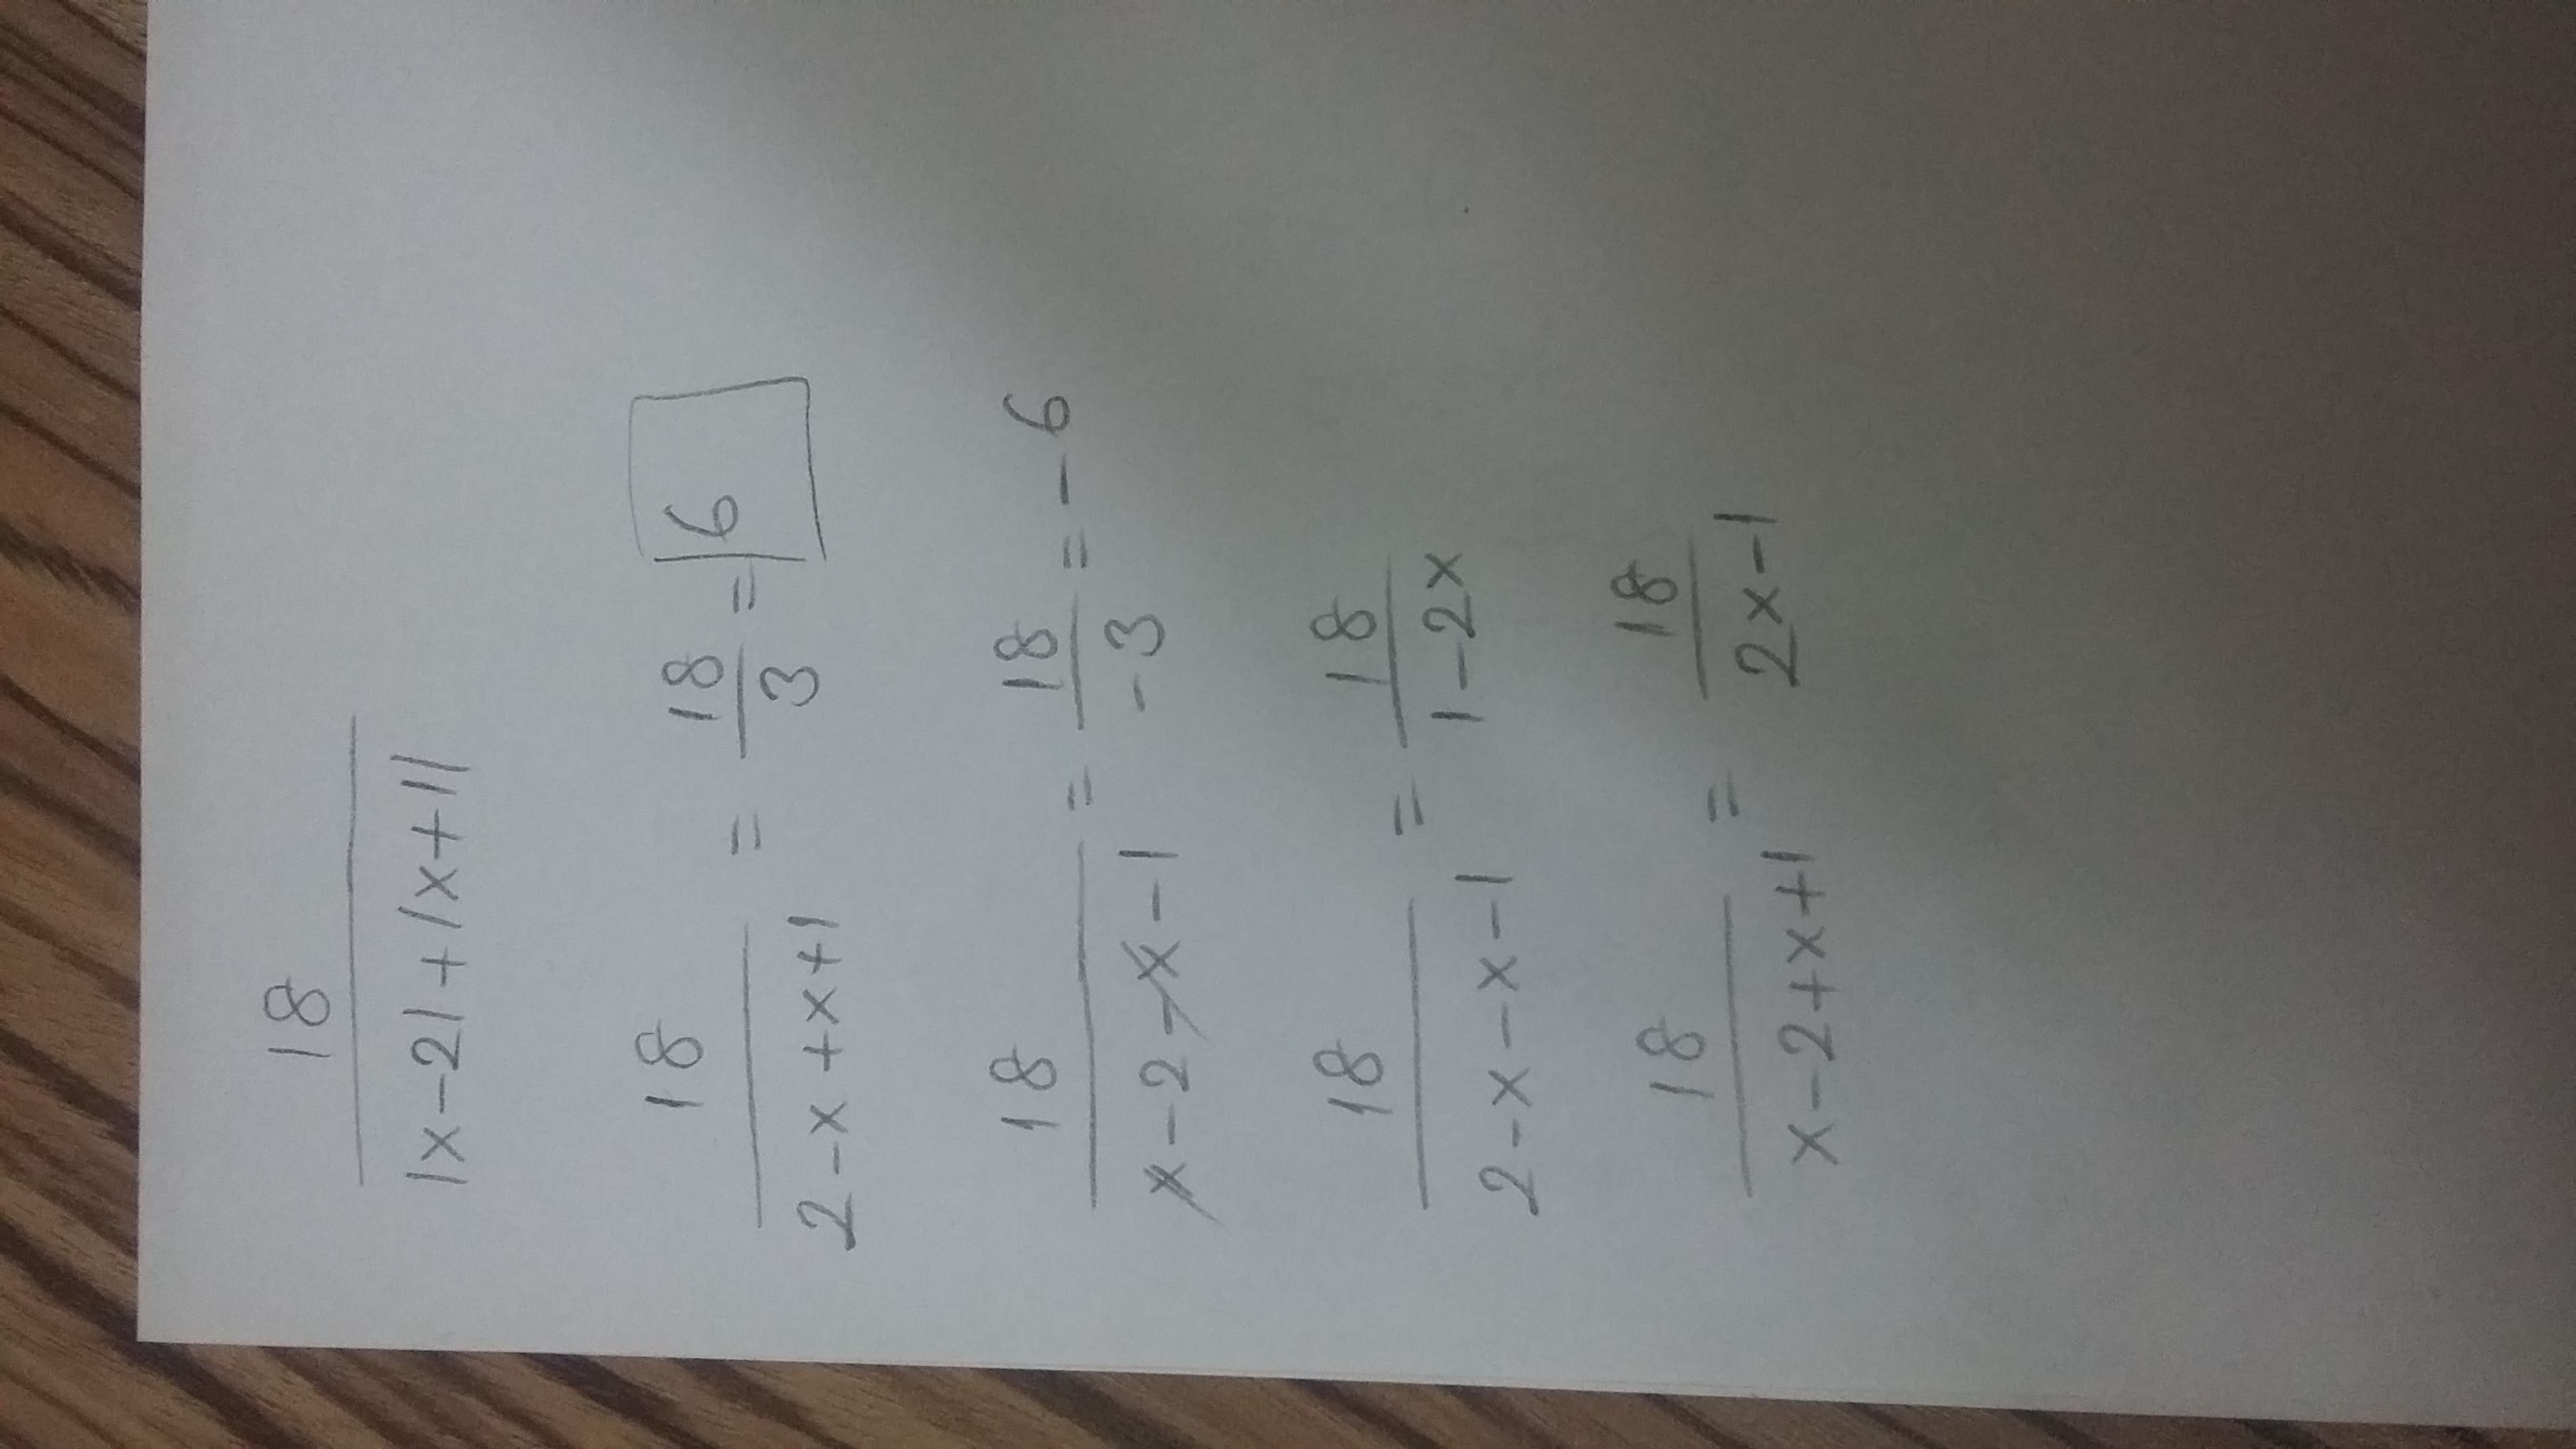 18
|x-2|+|x+1|
18 / 2-x+x+1 = 18/3 = 6
18 / x-2-x-1 = 18/-3 = -6
18 / 2-x-x-1 = 18 / 1-2x
18 / x-2+x+1 = 18 / 2x-1